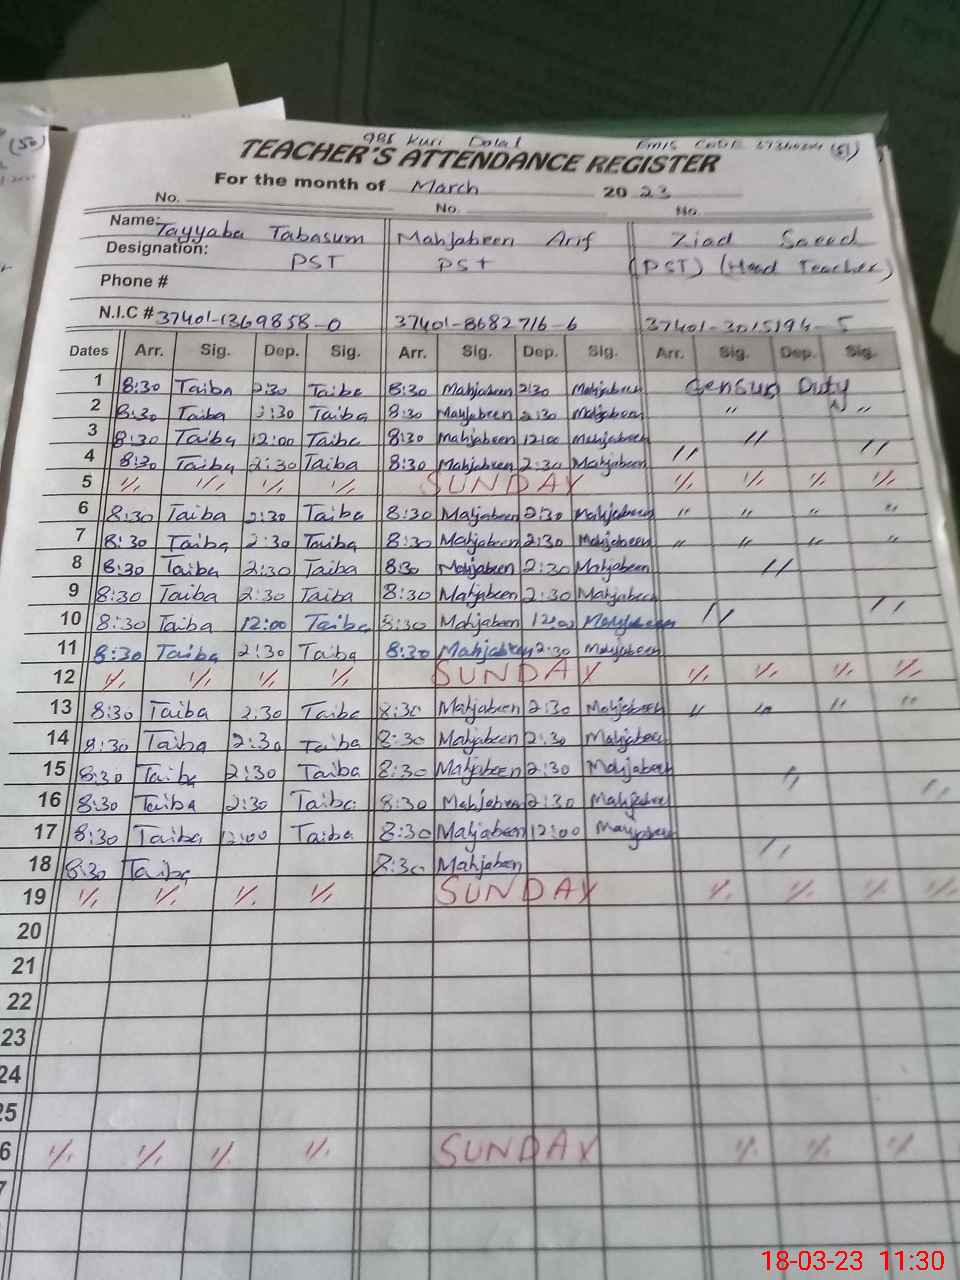 (50)
GBS Kuri Dolal EMIS CODE (51)
TEACHER'S ATTENDANCE REGISTER
For the month of March 2023
No. No. No.
Name: Tayyaba Tabasum Mahjabeen Arif Ziad Saeed
Designation: PST PST (PST) (Head Teacher)
Phone #
N.I.C # 37401-1369858-0 37401-8682716-6 37401-3015194-5
Dates Arr. Sig. Dep. Sig. Arr. Sig. Dep. Sig. Arr. Sig. Dep. Sig.
1 8:30 Taiba 2:30 Taiba 8:30 Mahjabeen 2:30 Mahjabeen Census Duty
2 8:30 Taiba 2:30 Taiba 8:30 Mahjabeen 2:30 Mahjabeen " "
3 8:30 Taiba 12:00 Taiba 8:30 Mahjabeen 12:00 Mahjabeen "
4 8:30 Taiba 2:30 Taiba 8:30 Mahjabeen 2:30 Mahjabeen " "
5 SUNDAY
6 8:30 Taiba 2:30 Taiba 8:30 Mahjabeen 2:30 Mahjabeen " " " "
7 8:30 Taiba 2:30 Taiba 8:30 Mahjabeen 2:30 Mahjabeen " " " "
8 8:30 Taiba 2:30 Taiba 8:30 Mahjabeen 2:30 Mahjabeen "
9 8:30 Taiba 2:30 Taiba 8:30 Mahjabeen 2:30 Mahjabeen "
10 8:30 Taiba 12:00 Taiba 8:30 Mahjabeen 12:00 Mahjabeen "
11 8:30 Taiba 2:30 Taiba 8:30 Mahjabeen 2:30 Mahjabeen
12 SUNDAY
13 8:30 Taiba 2:30 Taiba 8:30 Mahjabeen 2:30 Mahjabeen " " " "
14 8:30 Taiba 2:30 Taiba 8:30 Mahjabeen 2:30 Mahjabeen
15 8:30 Taiba 2:30 Taiba 8:30 Mahjabeen 2:30 Mahjabeen "
16 8:30 Taiba 2:30 Taiba 8:30 Mahjabeen 2:30 Mahjabeen "
17 8:30 Taiba 12:00 Taiba 8:30 Mahjabeen 12:00 Mahjabeen
18 8:30 Taiba 8:30 Mahjabeen "
19 SUNDAY
20
21
22
23
24
25
6 SUNDAY
7
18-03-23 11:30